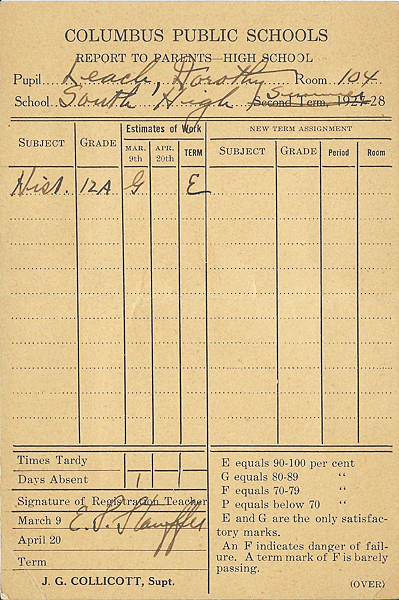 COLUMBUS PUBLIC SCHOOLS
REPORT TO PARENTS—HIGH SCHOOL
Pupil Leach, Dorothy Room 104
School South High Summer Second Term, 1927-28
SUBJECT GRADE Estimates of Work NEW TERM ASSIGNMENT
MAR. 9th APR. 20th TERM SUBJECT GRADE Period Room
Hist. 12A G E
Times Tardy
Days Absent 1
Signature of Registration Teacher
March 9 E. P. Stauffer
April 20
Term
J. G. COLLICOTT, Supt.
E equals 90-100 per cent
G equals 80-89 “
F equals 70-79 “
P equals below 70 “
E and G are the only satisfac-
tory marks.
An F indicates danger of fail-
ure. A term mark of F is barely
passing.
(OVER)